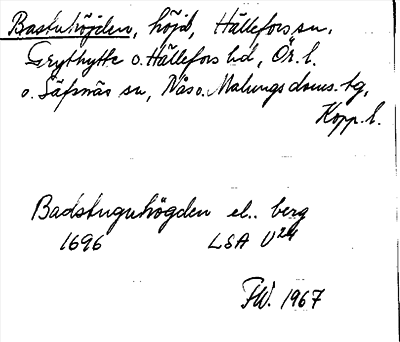 Bastuhöjden, höjd, Hällefors sn,
Grythytte o. Hällefors hd, Ör. l.
o. Säfsnäs sn, Nås o. Malungs doms. tg,
Kopp. l.
Badstuguhögden el.. berg
1696 LSA U24
FW. 1967